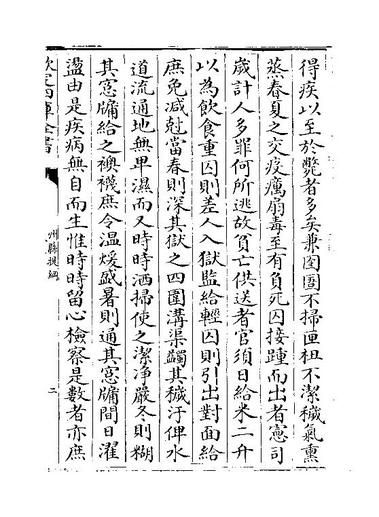 得疾以至於斃者多矣兼囹圄不掃匣杻不潔穢氣熏
蒸春夏之交疫癘扇毒至有負死囚接踵而出者憲司
歲計人多罪何所逃故貧亡供送者官須日給米二升
以為飲食重囚則差人入獄監給輕囚則引出對面給
庶免減尅當春則深其獄之四圍溝渠蠲其穢汙俾水
道流通地無卑濕而又時時洒掃使之潔淨嚴冬則糊
其窓牖給之襖襪庶令温煖盛暑則通其窓牖間日濯
盪由是疾病無自而生惟時時留心檢察是數者亦庶
欽定四庫全書
州縣提綱
二